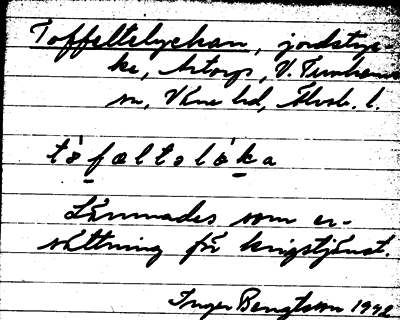 Toffeltelyckan, jordstyc-
ke, Artorp, V. Tunhems
sn, Väne hd, Älvsb. l.
tὸfəltəlὸka
Lämnades som er-
sättning för krigstjänst.
Inger Bengtsson 1942